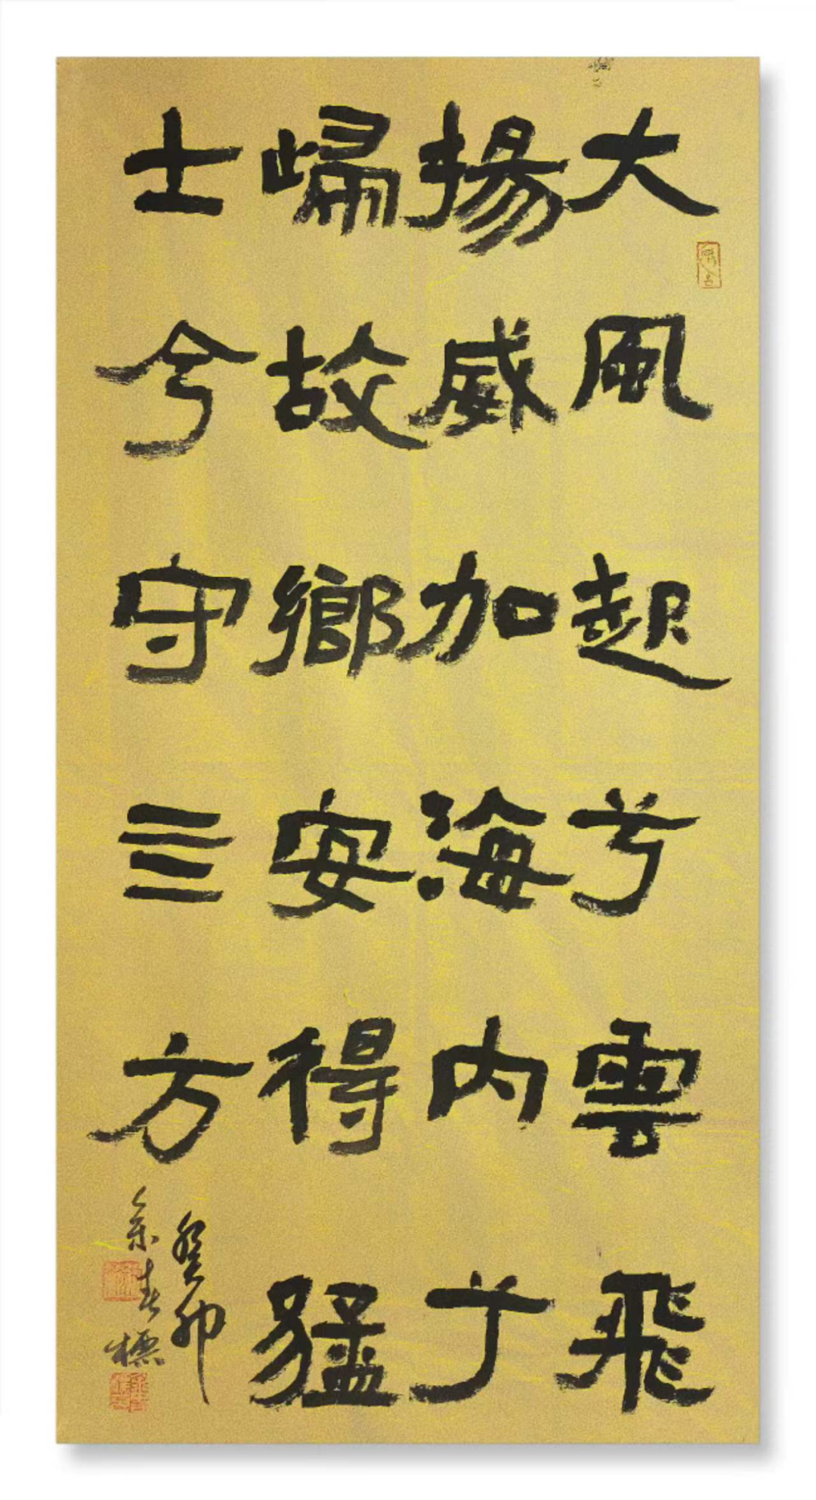 大風起兮雲飛
揚威加海内兮
歸故鄉安得猛
士兮守亖方
癸卯
余春標